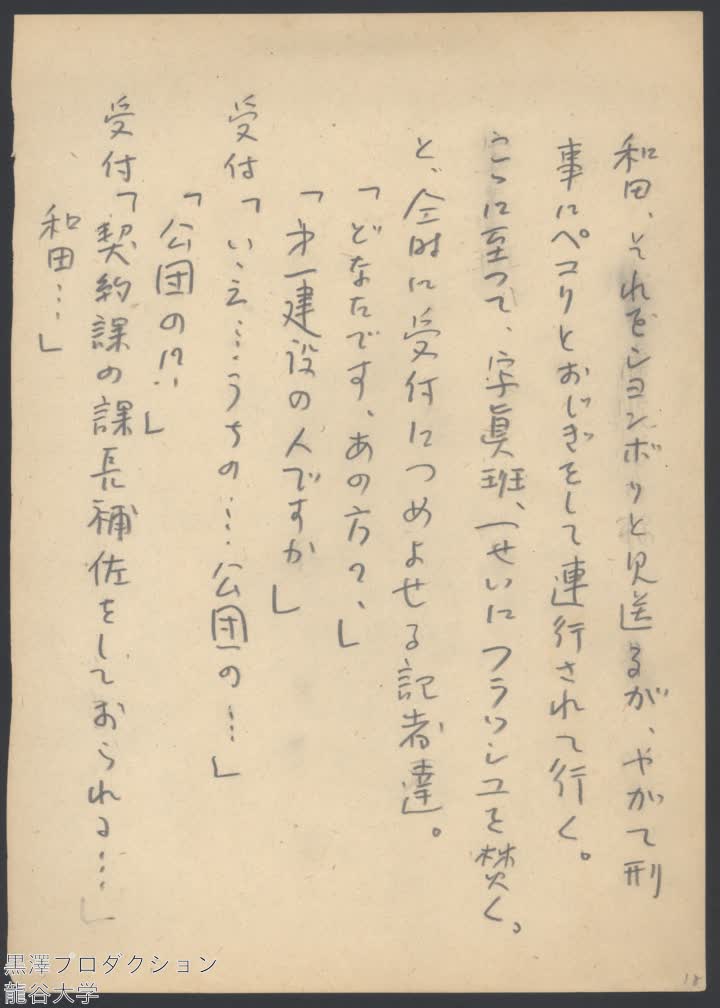 和田、それをションボリと見送るが、やがて刑
事にペコリとおじぎをして連行されて行く。
こゝに至って、字眞班、一せいにフラッシュを焚く。
と、今时に受付につめよせる記者達。
「どなたです、あの方？、」
「㐧一建設の人ですか」
受付「いゝえ…うちの…公団の…」
「公団の!?」
受付「契約課の課長補佐をしておられる…
和田…」
黒澤プロダクション
龍谷大学
18